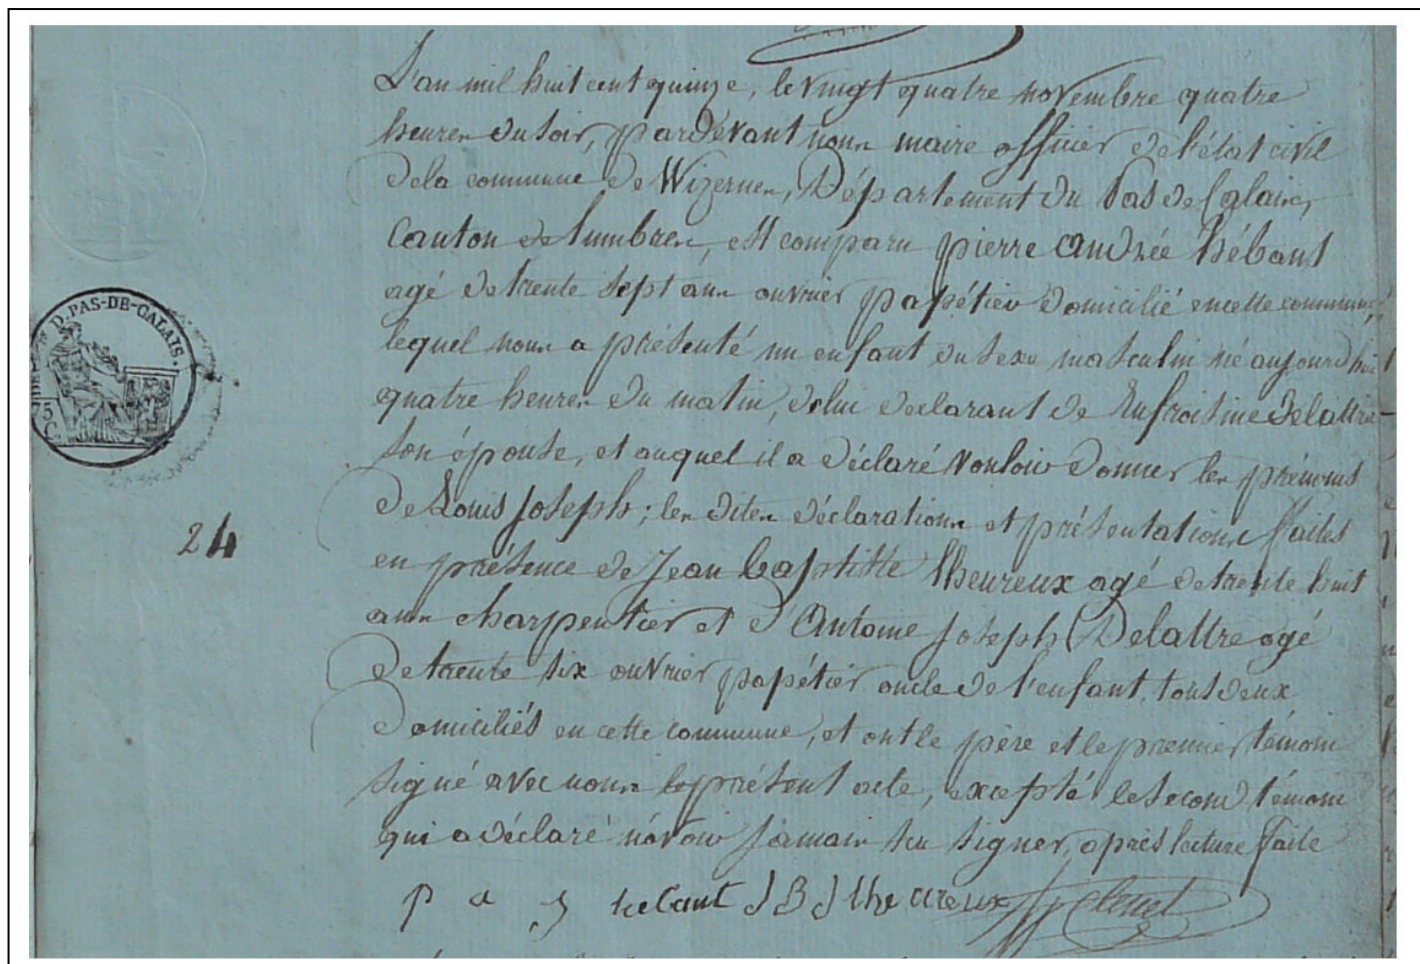 L'an mil huit cent quinze, le vingt quatre novembre quatre
heures du soir, pardevant nous maire officier de l'état civil
de la commune de Wizernes, Département du Pas de Calais,
Canton de Lumbres, est comparu pierre Andrée hébant
agé de trente sept ans ouvrier papétier domicilié en cette commune,
lequel nous a présenté un enfant du sexe masculin né aujourd'hui
D. PAS-DE-CALAIS.
quatre heures du matin, de lui déclarant de Enfroisine Delattre
75
C.
son épouse, et auquel il a déclaré vouloir donner les prénoms
de Louis Joseph; les dites déclarations et présentations faites
24
en présence de Jean baptiste lheureux agé de trente huit
ans charpentier et d'Antoine Joseph Delattre agé
de trente six ouvrier papétier oncle de l'enfant, tous deux
domiciliés en cette commune, et ont le père et le premier témoin
signé avec nous le présent acte, excepté le second témoin
qui a déclaré n'avoir jamais su signer, après lecture faite
p a j hebant J B J lheureux